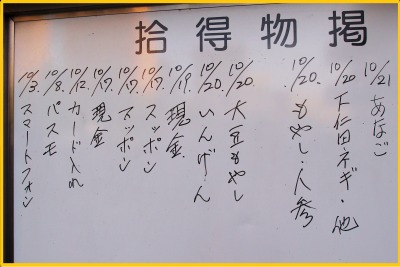 拾得物掲
10/21 あなご
10/20 下仁田ネギ・他
10/20. もやし・人参
10/20. 大豆もやし
10/20. いんげん
10/19. 現金
10/17. スッポン
10/17. スッポン
10/17. 現金
10/12. カード入れ
10/8. パスモ
10/3. スマートフォン